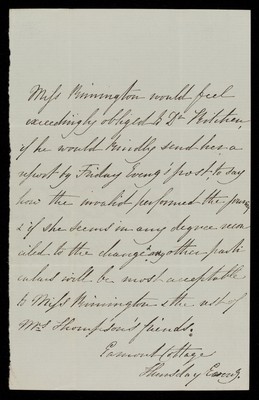 Miss Rimington would feel
exceedingly obliged to Dr
if he would kindly send her a
report by Friday Eveng's post, to say
how the invalid performed the journey
& if she seems in any degree recon
ciled to the change, any other parti
culars will be most acceptable
to Miss Rimington & the rest of
Mrs Thompson's friends.
Eamont Cottage
Thursday Eveng.